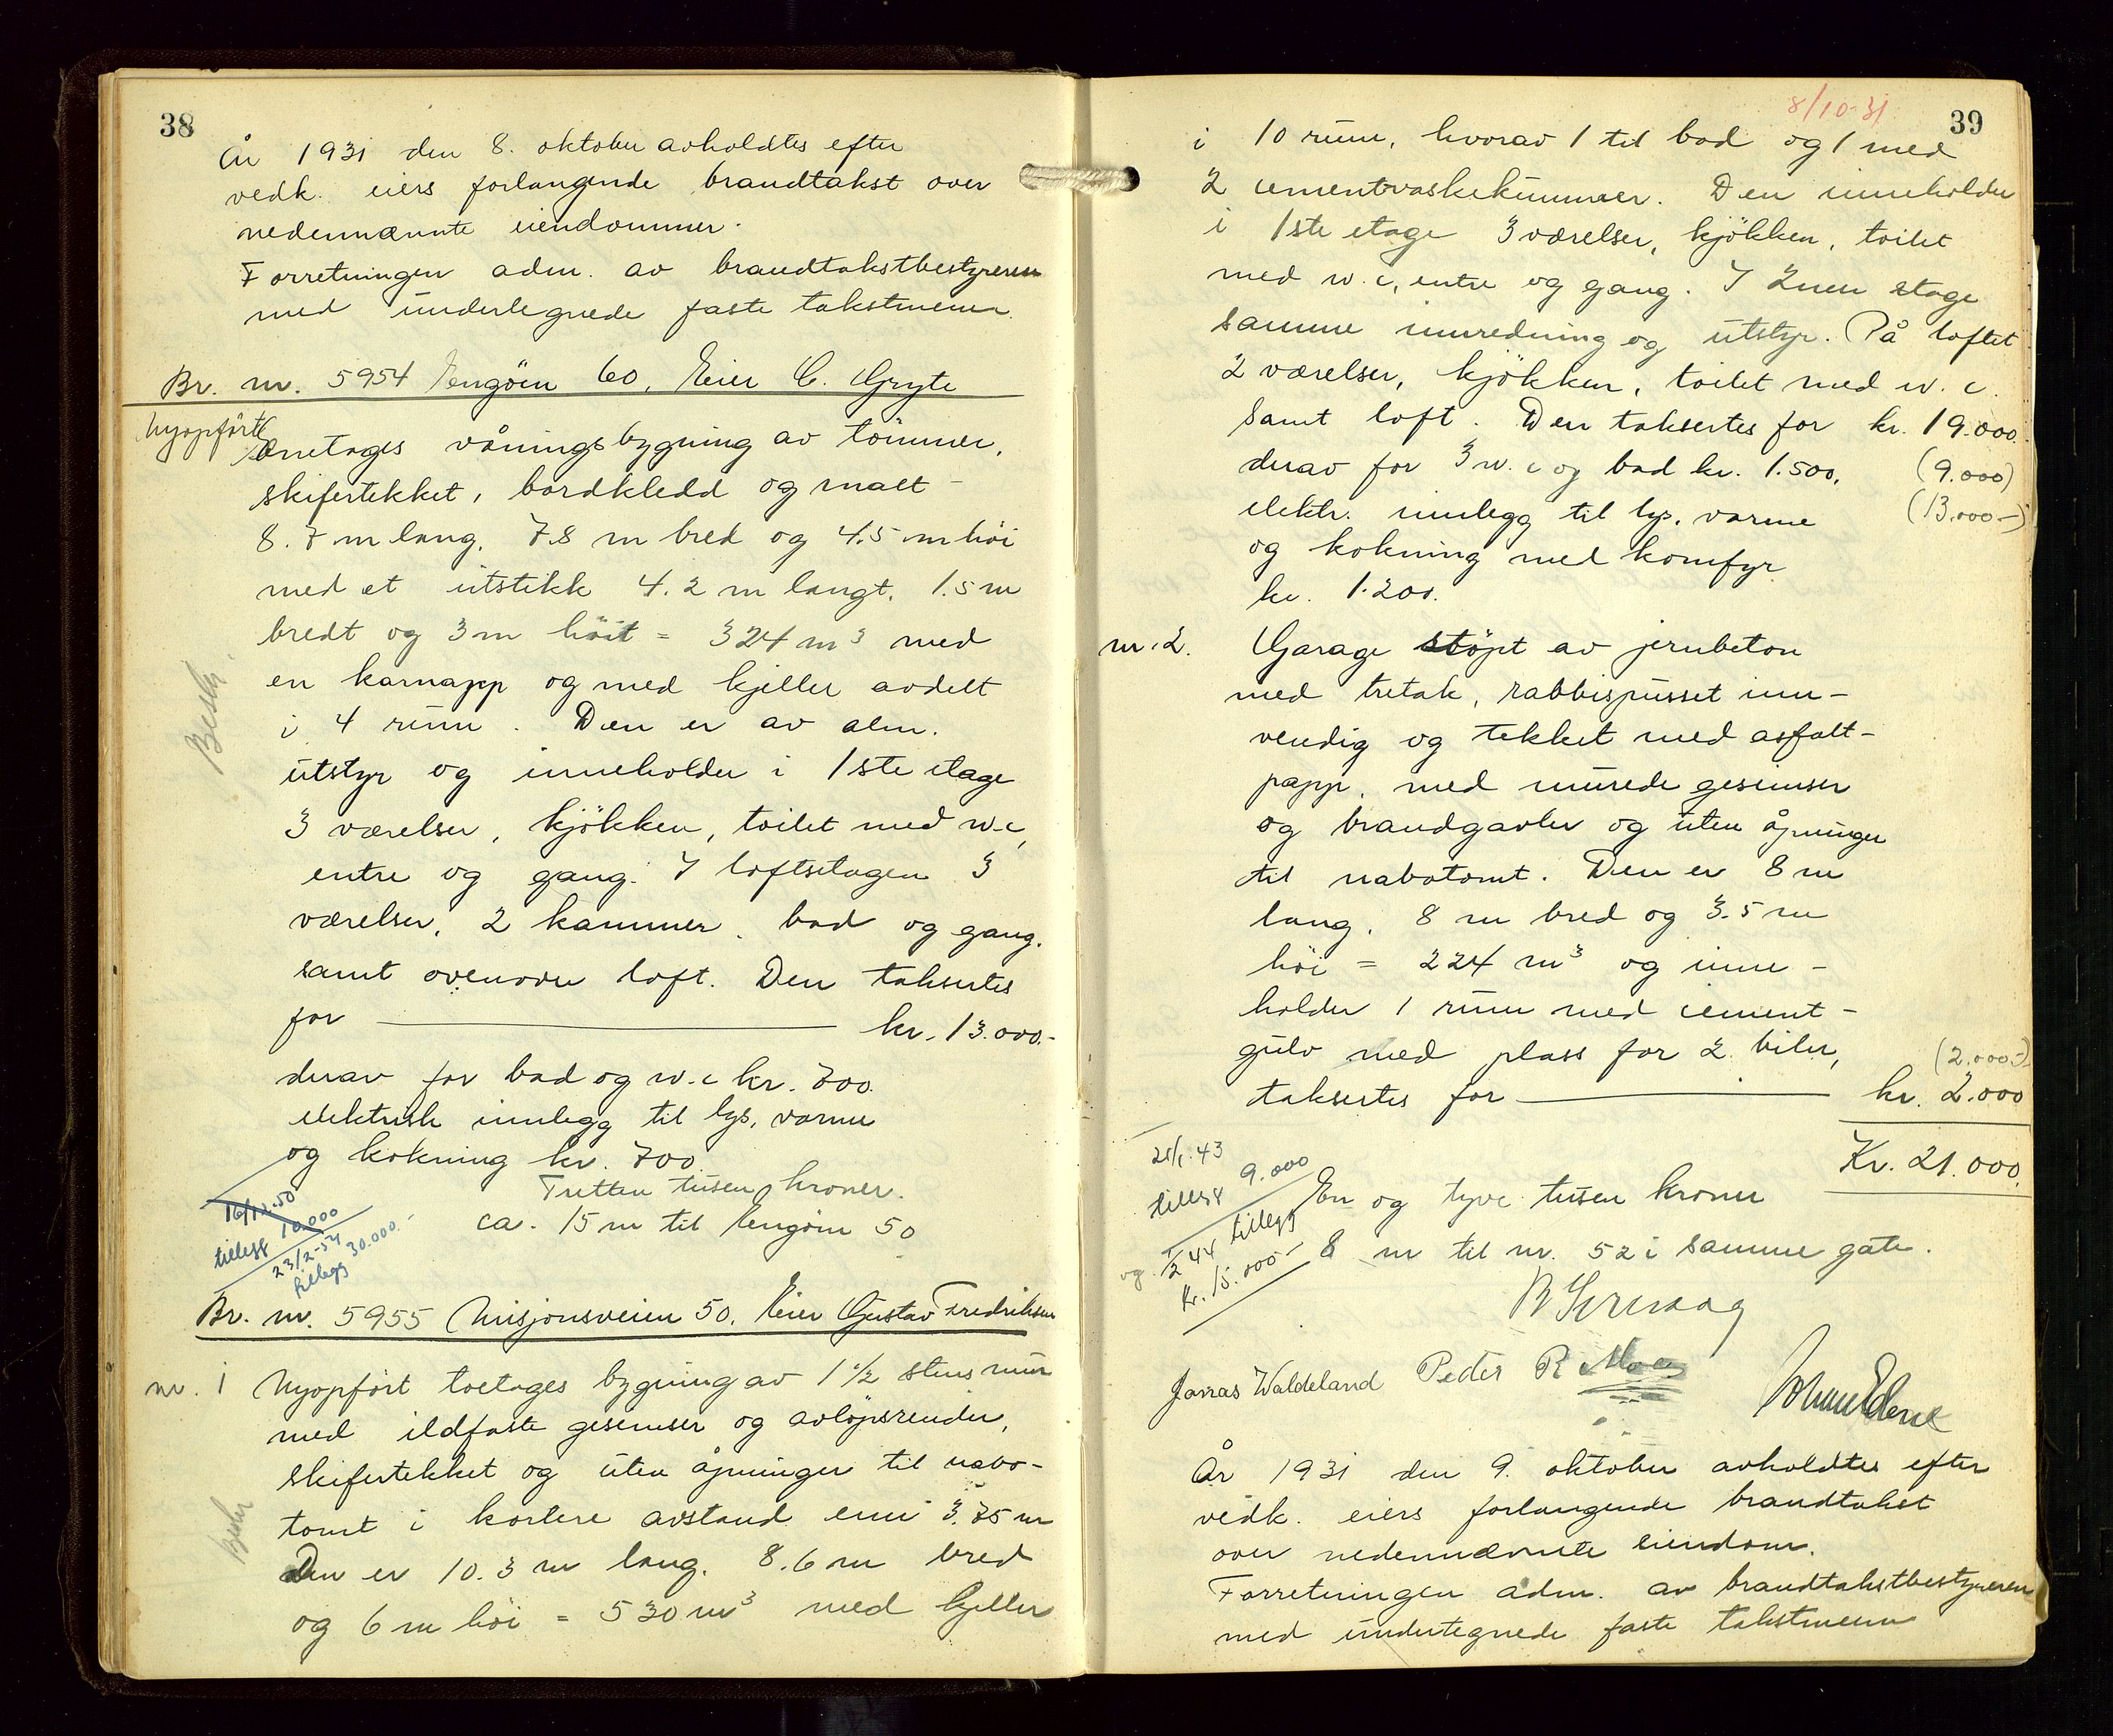 38
År 1931 den 8. oktober avholdtes efter
vedk. eiers forlangende brandtakst over
nedennævnte eiendommer.
Forretningen adm. av brandtakstbestyreren
med undertegnede faste takstmenn.
Br. nr. 5954 Engöen 60, Eier C. Gryte
Nyopfört
enetages våningsbygning av tömmer,
skifertekket, bordkledd og malt –
8.7 m lang, 7.8 m bred og 4.5 m höi
med et utstikk 4.2 m langt, 1.5 m
bredt og 3 m höit = 324 m³ med
en karnapp og med kjeller avdelt
i 4 rum. Den er av alm.
utstyr og inneholder i 1ste etage
3 værelser, kjökken, toilet med w.c,
entre og gang. I loftsetagen 3
værelser, 2 kammer, bad og gang,
samt ovenover loft. Den takseres
for kr. 13.000.-
derav for bad og w.c kr. 700.
elektrisk innlegg til lys, varme
og kokning kr. 700.
Tretten tusen kroner.
ca. 15 m til Engöen 50
16/12-50
tillegg 10.000
23/2-54
tillegg 30.000.-
Br. nr. 5955 Misjonsveien 50, Eier Gustav Fredriksen
nr. 1 Nyopfört toetages bygning av 1 1/2 stens mur
med ildfaste gesemser og avlöpsrender,
skifertekket og uten åpninger til nabo-
tomt i kortere avstand enn 3.75 m
Den er 10.3 m lang, 8.6 m bred
og 6 m höi = 530 m³ med kjeller
8/10-31
39
i 10 rum, hvorav 1 til bad og 1 med
2 cementvaskekummer. Den inneholder
i 1ste etage 3 værelser, kjökken, toilet
med w.c, entre og gang. I 2nen etage
samme innredning og utstyr. På loftet
2 værelser, kjökken, toilet med w.c.
samt loft. Den taksertes for kr. 19.000.
derav for 3 w.c og bad kr. 1.500, (9.000)
elektr. innlegg til lys, varme (13.000-)
og kokning med komfyr
kr. 1.200.
nr. 2. Garage støpt av jernbeton
med tretak, rabbispusset inn-
vendig og tekket med asfalt-
papp, med murede gesemser
og brandgavler og uten åpninger
til nabotomt. Den er 8 m
lang, 8 m bred og 3.5 m
höi = 224 m³ og inne-
holder 1 rum med cement-
gulv med plass for 2 biler, (2.000.-)
taksertes for kr. 2.000
Kr. 21.000.
21/1-43
tillegg 9.000
En og tyve tusen kroner
og 1/2 44 tillegg
kr. 15.000.-
8 m til nr. 52 i samme gate.
Jonas Waldeland Peder R
År 1931 den 9. oktober avholdtes efter
vedk. eiers forlangende brandtakst
over nedennævnte eiendom.
Forretningen adm. av brandtakstbestyreren
med undertegnede faste takstmenn